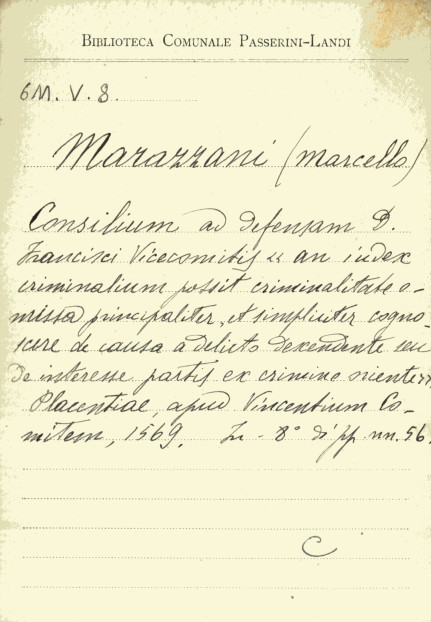 BIBLIOTECA COMUNALE PASSERINI-LANDI
6M. V. 8.
Marazzani (Marcello)
Consilium ad defensam D.
Francisci Vicecomitis «an iudex
criminalium possit criminalitate o-
missa principaliter, et simpliciter cogno-
scere de causa a delicto dexendente seu
de interesse partis ex crimine orientem
Placentiae, apud Vincentium Co-
mitem, 1569. In-8° di pp. nn. 56.
C